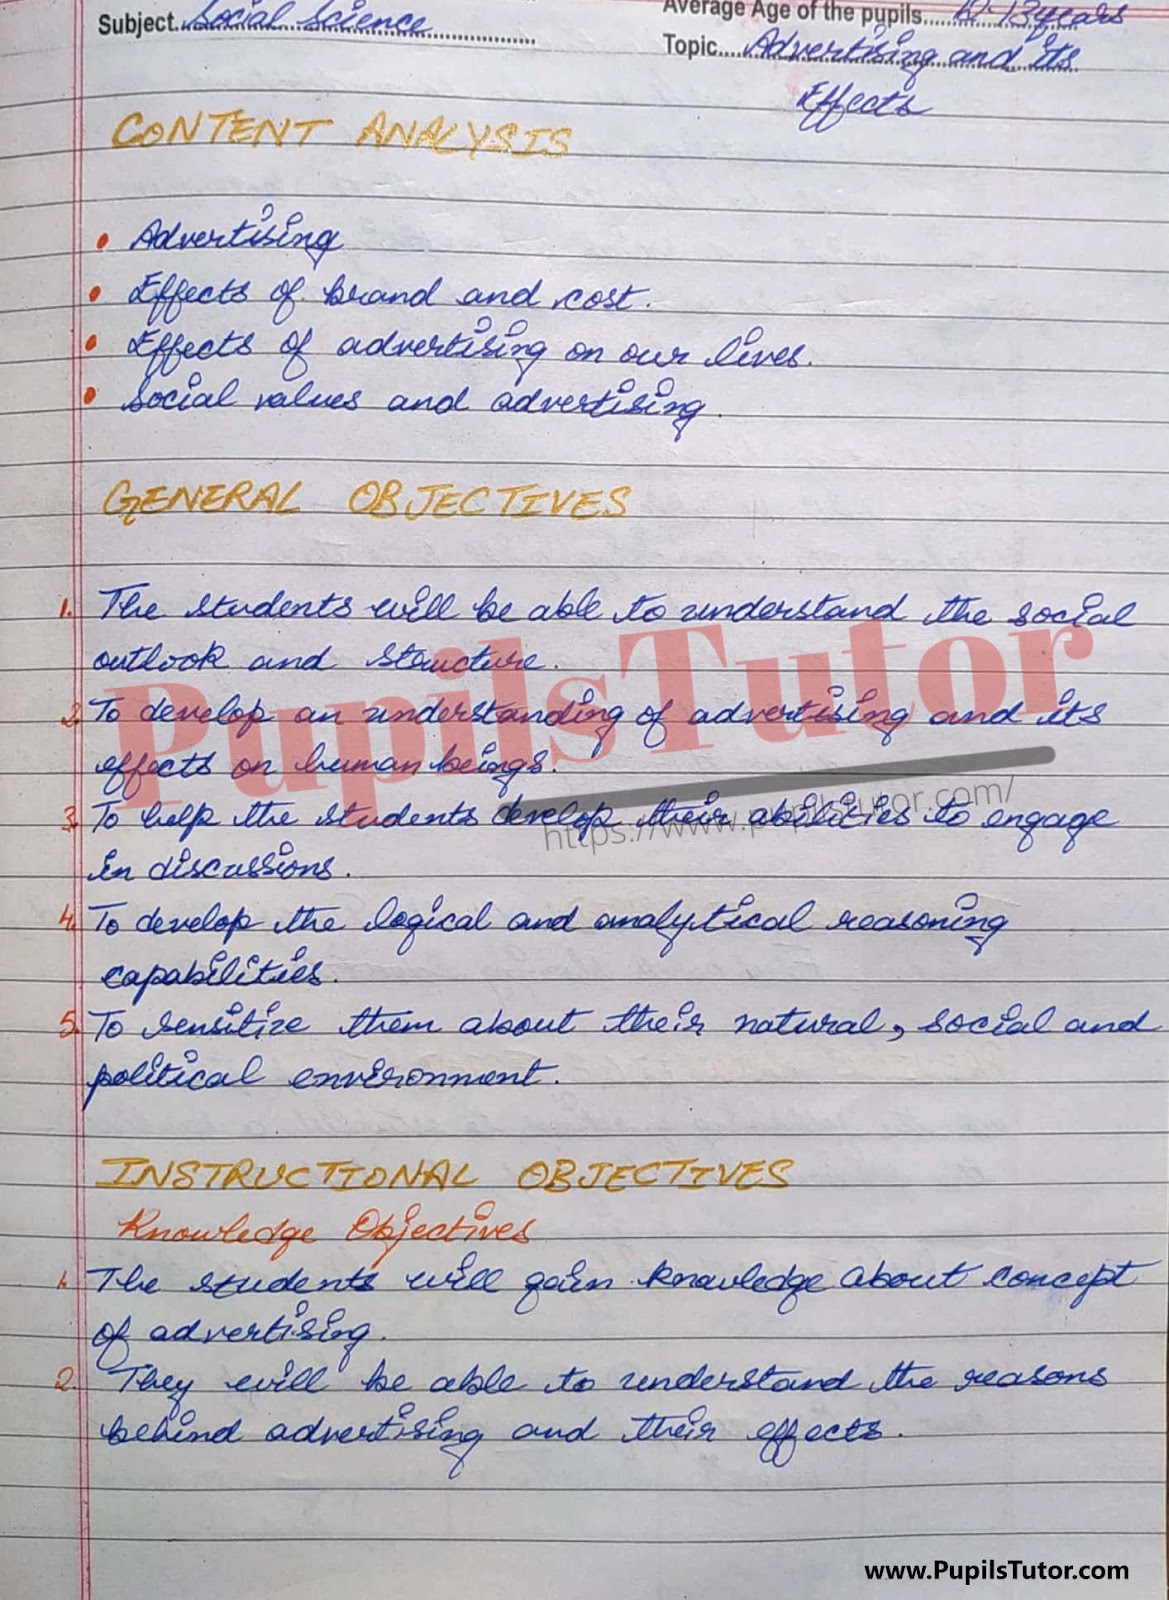 Average Age of the pupils......12-13 years
Subject..Social Science................
Topic....Advertising and its
Effects
CONTENT ANALYSIS
• Advertising
• Effects of brand and cost.
• Effects of advertising on our lives.
• Social values and advertising.
GENERAL OBJECTIVES
1. The students will be able to understand the social
outlook and structure.
2. To develop an understanding of advertising and its
effects on human beings.
3. To help the students develop their abilities to engage
in discussions.
4. To develop the logical and analytical reasoning
capabilities.
5. To sensitize them about their natural, social and
political environment.
PupilsTutor
https://www.pupilstutor.com/
INSTRUCTIONAL OBJECTIVES
Knowledge Objectives
1. The students will gain knowledge about concept
of advertising.
2. They will be able to understand the reasons
behind advertising and their effects.
www.PupilsTutor.com